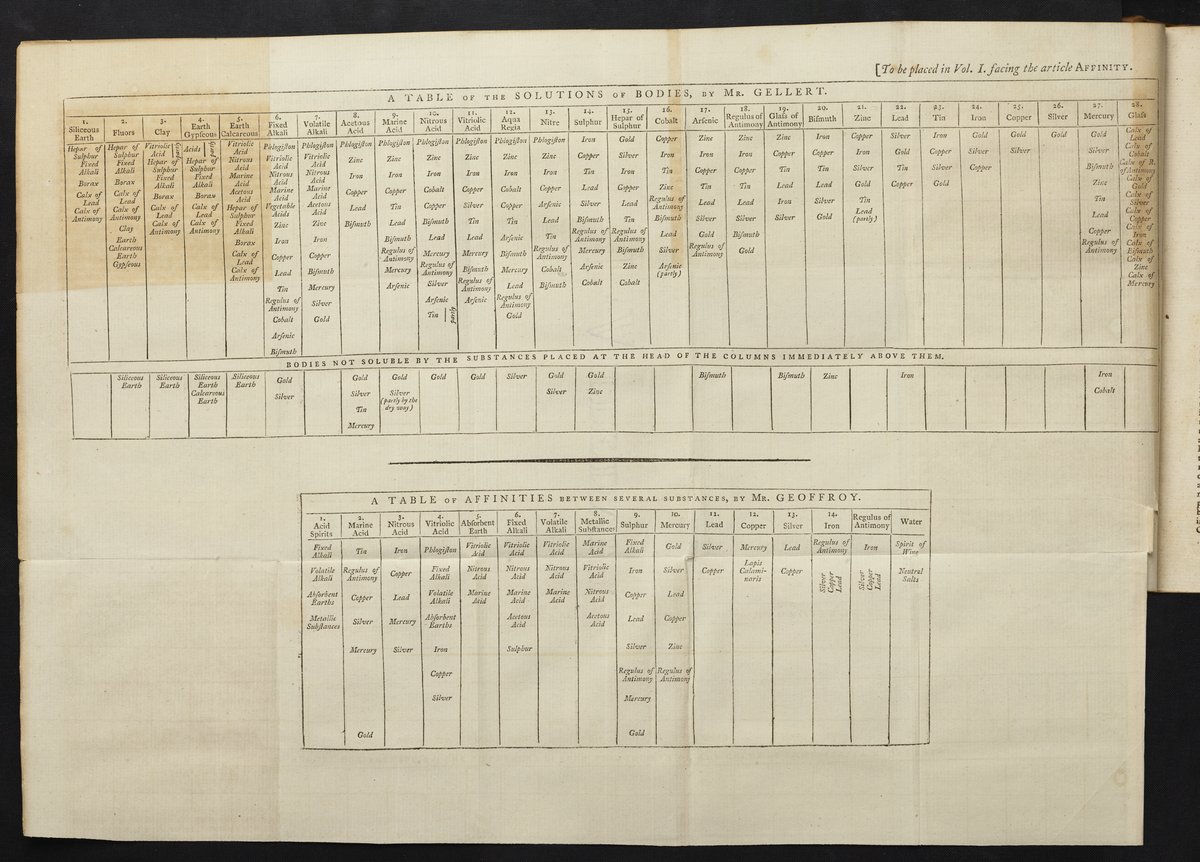 [To be placed in Vol. I. facing the article AFFINITY.
A TABLE OF THE SOLUTIONS OF BODIES, BY MR. GELLERT.
1.
Siliceous
Earth
Hepar of
Sulphur
Fixed
Alkali
Borax
Calx of
Lead
Calx of
Antimony
2.
Fluors
Hepar of
Sulphur
Fixed
Alkali
Borax
Calx of
Lead
Calx of
Antimony
Clay
Earth
Calcareous
Earth
Gypſeous
3.
Clay
Vitriolic
Acid
Hepar of
Sulphur
Fixed
Alkali
Borax
Calx of
Lead
Calx of
Antimony
4.
Earth
Gypſeous
Acids
Hepar of
Sulphur
Fixed
Alkali
Borax
Calx of
Lead
Calx of
Antimony
5.
Earth
Calcareous
Vitriolic
Acid
Nitrous
Acid
Marine
Acid
Acetous
Acid
Hepar of
Sulphur
Fixed
Alkali
Borax
Calx of
Lead
Calx of
Antimony
6.
Fixed
Alkali
Phlogiſton
Vitriolic
Acid
Nitrous
Acid
Marine
Acid
Vegetable
Acids
Zinc
Iron
Copper
Lead
Tin
Regulus of
Antimony
Cobalt
Arſenic
Biſmuth
7.
Volatile
Alkali
Phlogiſton
Vitriolic
Acid
Nitrous
Acid
Marine
Acid
Acetous
Acid
Zinc
Iron
Copper
Biſmuth
Mercury
Silver
Gold
8.
Acetous
Acid
Phlogiſton
Zinc
Iron
Copper
Lead
Biſmuth
9.
Marine
Acid
Phlogiſton
Zinc
Iron
Copper
Tin
Lead
Biſmuth
Regulus of
Antimony
Mercury
Arſenic
10.
Nitrous
Acid
Phlogiſton
Zinc
Iron
Cobalt
Copper
Biſmuth
Lead
Mercury
Regulus of
Antimony
Silver
Arſenic
Tin
partly
11.
Vitriolic
Acid
Phlogiſton
Zinc
Iron
Copper
Silver
Tin
Lead
Mercury
Biſmuth
Regulus of
Antimony
Arſenic
12.
Aqua
Regia
Phlogiſton
Zinc
Iron
Cobalt
Copper
Tin
Arſenic
Biſmuth
Mercury
Lead
Regulus of
Antimony
Gold
13.
Nitre
Phlogiſton
Zinc
Iron
Copper
Arſenic
Lead
Tin
Regulus of
Antimony
Cobalt
Biſmuth
14.
Sulphur
Iron
Copper
Tin
Lead
Silver
Biſmuth
Regulus of
Antimony
Mercury
Arſenic
Cobalt
15.
Hepar of
Sulphur
Gold
Silver
Iron
Copper
Lead
Tin
Regulus of
Antimony
Biſmuth
Zinc
Cobalt
16.
Cobalt
Copper
Iron
Tin
Zinc
Regulus of
Antimony
Biſmuth
Lead
Silver
Arſenic
(partly)
17.
Arſenic
Zinc
Iron
Copper
Tin
Lead
Silver
Gold
Regulus of
Antimony
18.
Regulus of
Antimony
Zinc
Iron
Copper
Tin
Lead
Silver
Biſmuth
Gold
19.
Glaſs of
Antimony
Zinc
Copper
Tin
Lead
Iron
Silver
20.
Biſmuth
Iron
Copper
Tin
Lead
Silver
Gold
21.
Zinc
Copper
Silver
Silver
Gold
Tin
Lead
(partly)
22.
Lead
Silver
Gold
Tin
Copper
23.
Tin
Iron
Copper
Silver
Gold
24.
Iron
Gold
Silver
Copper
25.
Copper
Gold
Silver
26.
Silver
Gold
27.
Mercury
Gold
Silver
Biſmuth
Zinc
Tin
Lead
Copper
Regulus of
Antimony
28.
Glaſs
Calx of
Lead
Calx of
Cobalt
Calx of R.
of Antimony
Calx of
Gold
Calx of
Silver
Calx of
Copper
Calx of
Iron
Calx of
Biſmuth
Calx of
Zinc
Calx of
Mercury
BODIES NOT SOLUBLE BY THE SUBSTANCES PLACED AT THE HEAD OF THE COLUMNS IMMEDIATELY ABOVE THEM.
Siliceous
Earth
Siliceous
Earth
Siliceous
Earth
Calcareous
Earth
Siliceous
Earth
Gold
Silver
Gold
Silver
Tin
Mercury
Gold
Silver
(partly by the
dry way)
Gold
Gold
Silver
Gold
Silver
Gold
Zinc
Biſmuth
Biſmuth
Zinc
Iron
Iron
Cobalt
A TABLE OF AFFINITIES BETWEEN SEVERAL SUBSTANCES, BY MR. GEOFFROY.
1.
Acid
Spirits
Fixed
Alkali
Volatile
Alkali
Abſorbent
Earths
Metallic
Subſtances
2.
Marine
Acid
Tin
Regulus of
Antimony
Copper
Silver
Mercury
Gold
3.
Nitrous
Acid
Iron
Copper
Lead
Mercury
Silver
4.
Vitriolic
Acid
Phlogiſton
Fixed
Alkali
Volatile
Alkali
Abſorbent
Earths
Iron
Copper
Silver
5.
Abſorbent
Earth
Vitriolic
Acid
Nitrous
Acid
Marine
Acid
6.
Fixed
Alkali
Vitriolic
Acid
Nitrous
Acid
Marine
Acid
Acetous
Acid
Sulphur
7.
Volatile
Alkali
Vitriolic
Acid
Nitrous
Acid
Marine
Acid
8.
Metallic
Subſtances
Marine
Acid
Vitriolic
Acid
Nitrous
Acid
Acetous
Acid
9.
Sulphur
Fixed
Alkali
Iron
Copper
Lead
Silver
Regulus of
Antimony
Mercury
Gold
10.
Mercury
Gold
Silver
Lead
Copper
Zinc
Regulus of
Antimony
11.
Lead
Silver
Copper
12.
Copper
Mercury
Lapis
Calami-
naris
13.
Silver
Lead
Copper
14.
Iron
Regulus of
Antimony
Silver
Copper
Lead
Regulus of
Antimony
Iron
Silver
Copper
Lead
Water
Spirit of
Wine
Neutral
Salts